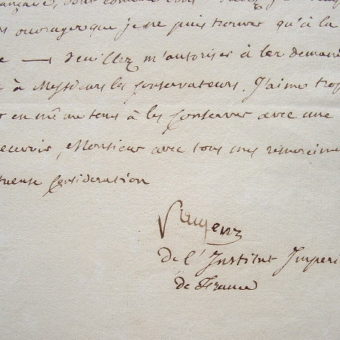 ouvrages que je ne puis trouver qu'à la
veuillez m'autoriser à les demander
à Messieurs les Conservateurs. J'aime trop
en même tems à les conserver avec une
recevoir, Monsieur avec tous mes remercime
tueuse Consideration
de l'Institut Imperi
de France